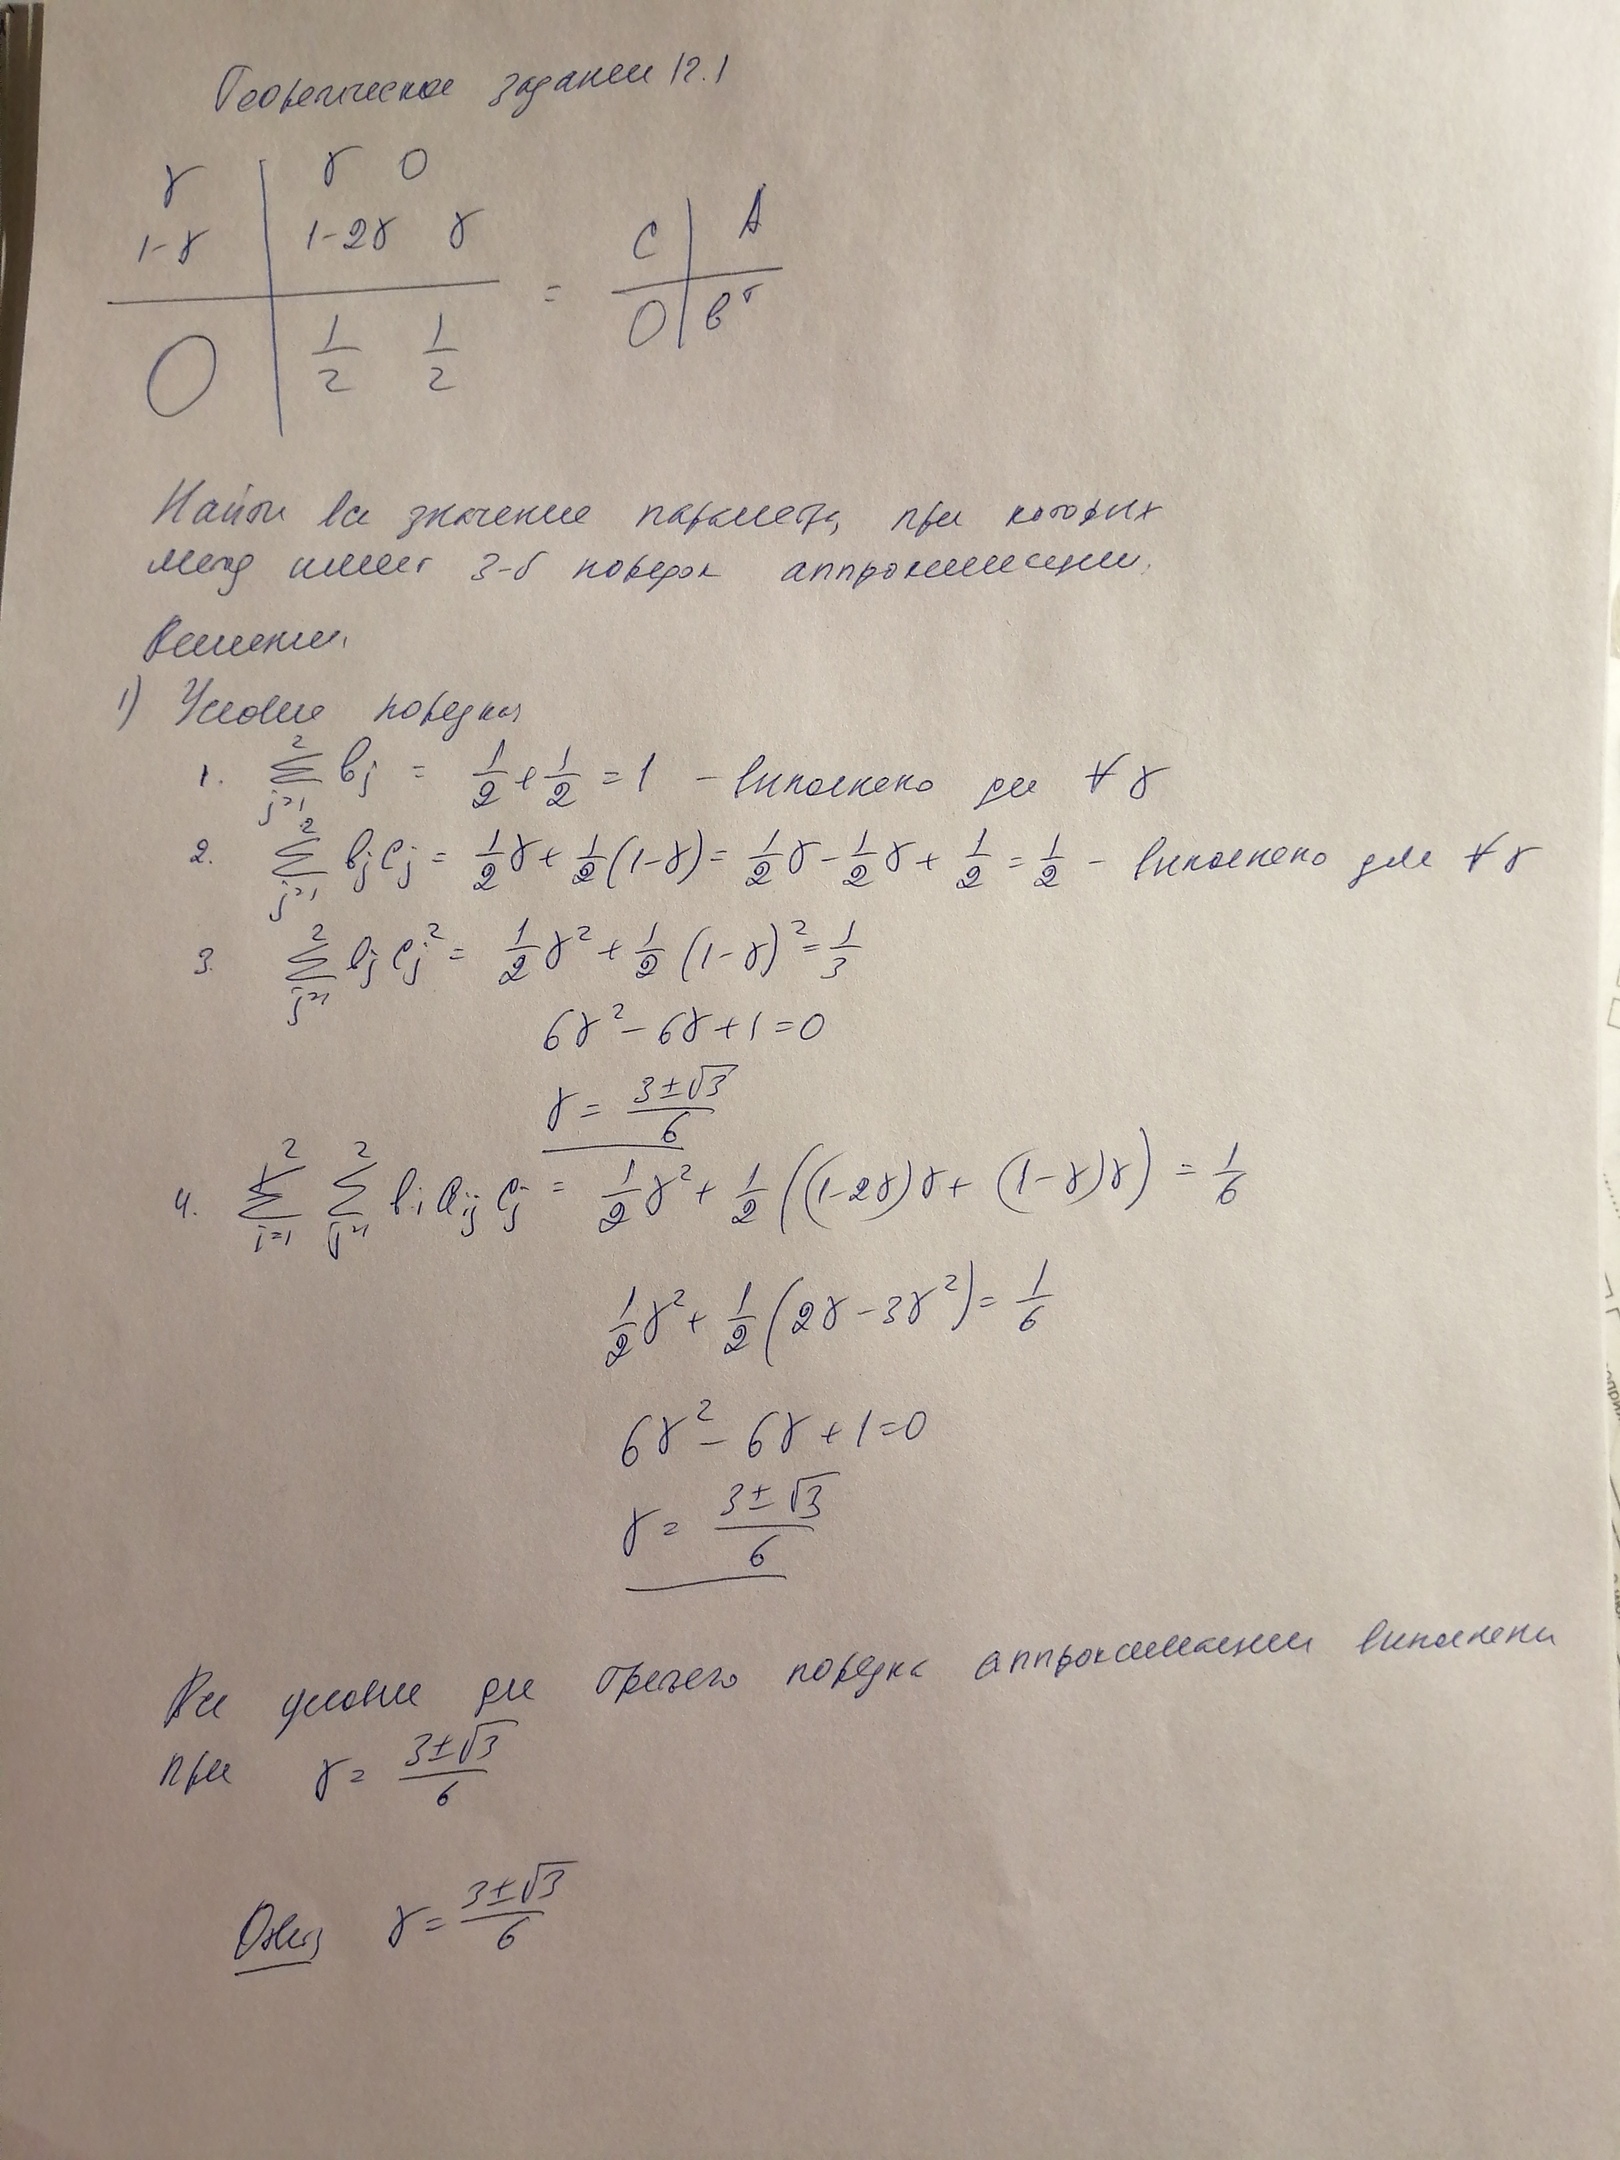 Теоретическое задание 12.1
γ | γ 0
1-γ | 1-2γ γ
0 | 1/2 1/2 = C | A
0 | b^T
Найти все значение параметра, при которых
метод имеет 3-й порядок аппроксимации.
Решение.
1) Условие порядка
1. \sum_{j=1}^{2} b_j = 1/2 + 1/2 = 1 – выполнено для ∀ γ
2. \sum_{j=1}^{2} b_j c_j = 1/2 γ + 1/2 (1-γ) = 1/2 γ - 1/2 γ + 1/2 = 1/2 – выполнено для ∀ γ
3. \sum_{j=1}^{2} b_j c_j^2 = 1/2 γ^2 + 1/2 (1-γ)^2 = 1/3
6γ^2 - 6γ + 1 = 0
γ = (3±√3)/6
4. \sum_{i=1}^{2} \sum_{j=1}^{2} b_i a_{ij} c_j = 1/2 γ^2 + 1/2 ((1-2γ)γ + (1-γ)γ) = 1/6
1/2 γ^2 + 1/2 (2γ - 3γ^2) = 1/6
6γ^2 - 6γ + 1 = 0
γ = (3±√3)/6
Все условие для третьего порядка аппроксимации выполнены
при γ = (3±√3)/6
Ответ γ = (3±√3)/6